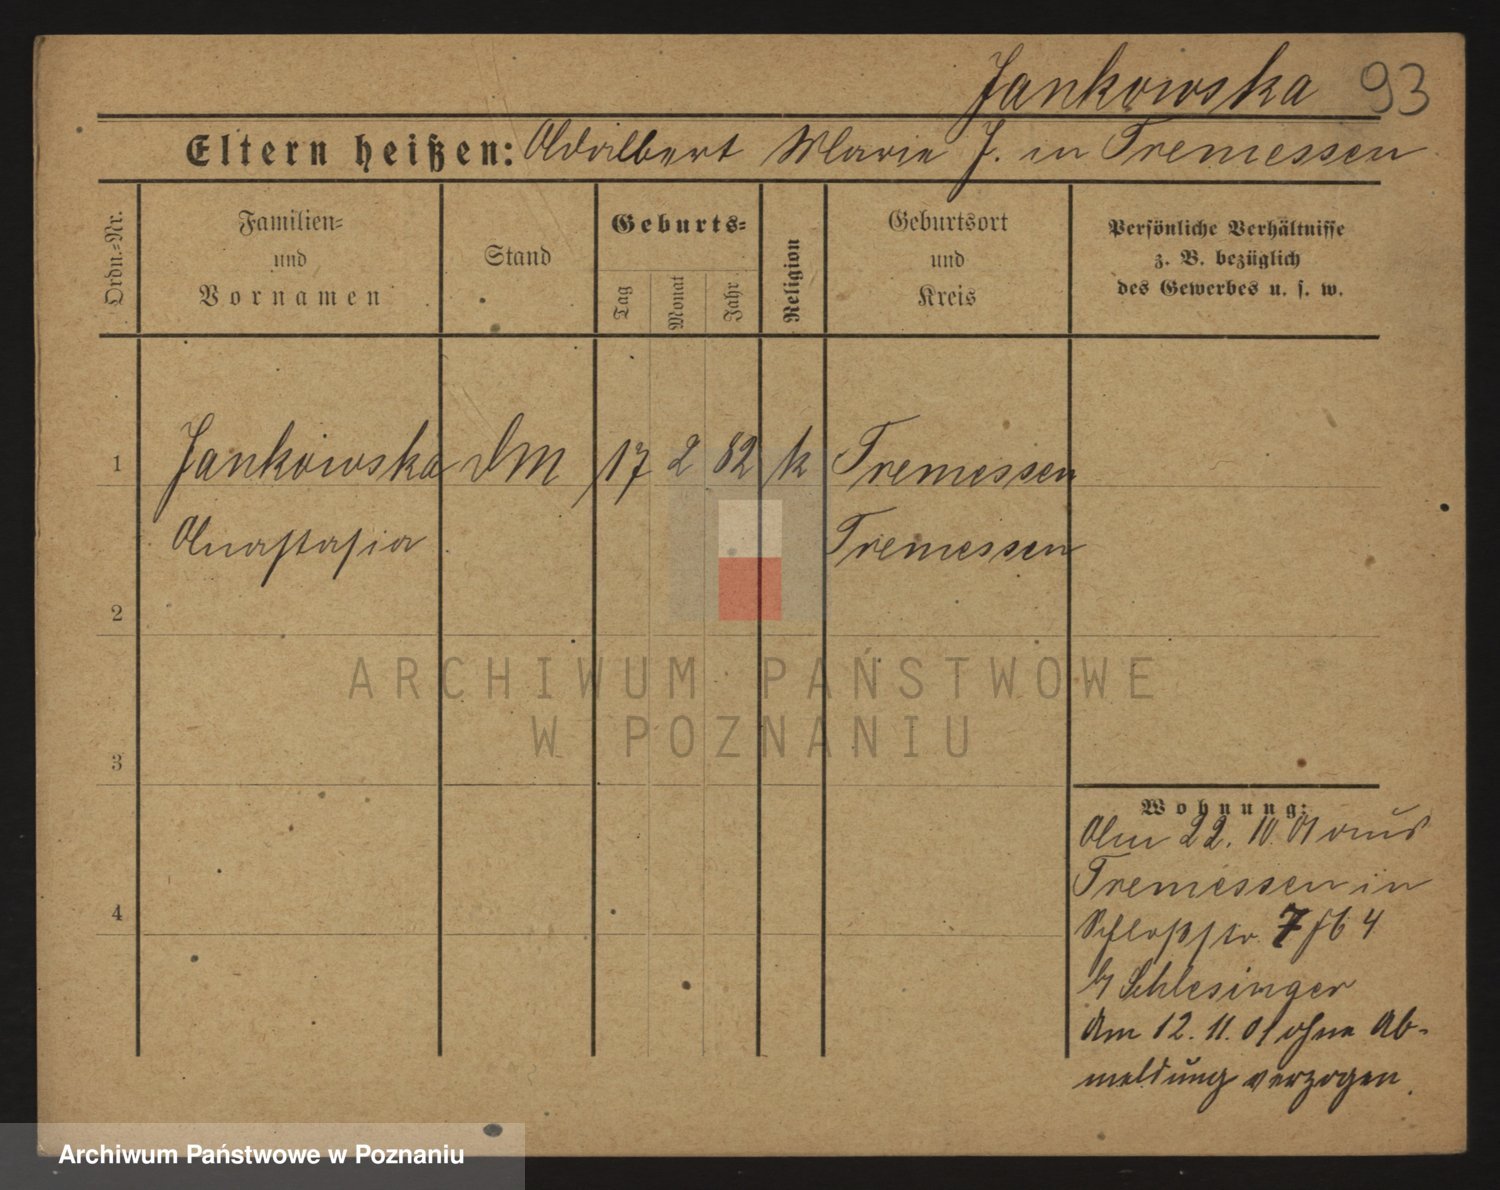 Jankowska 93
Eltern heißen: Adalbert Marie J. in Tremessen
Ordn.-Nr.
Familien- und Vornamen
Stand
Geburts-
Tag
Monat
Jahr
Religion
Geburtsort und Kreis
Persönliche Verhältnisse
z. B. bezüglich
des Gewerbes u. s. w.
1 Jankowska DM 17 2 82 k Tremessen
Anastasia Tremessen
2
3
4
Wohnung:
Am 22. 10. 01 aus
Tremessen in
Schloßstr. 7 4
b/ Schlesinger
Am 12. 11. 01 ohne Ab-
meldung verzogen.
ARCHIWUM PAŃSTWOWE
W POZNANIU
Archiwum Państwowe w Poznaniu